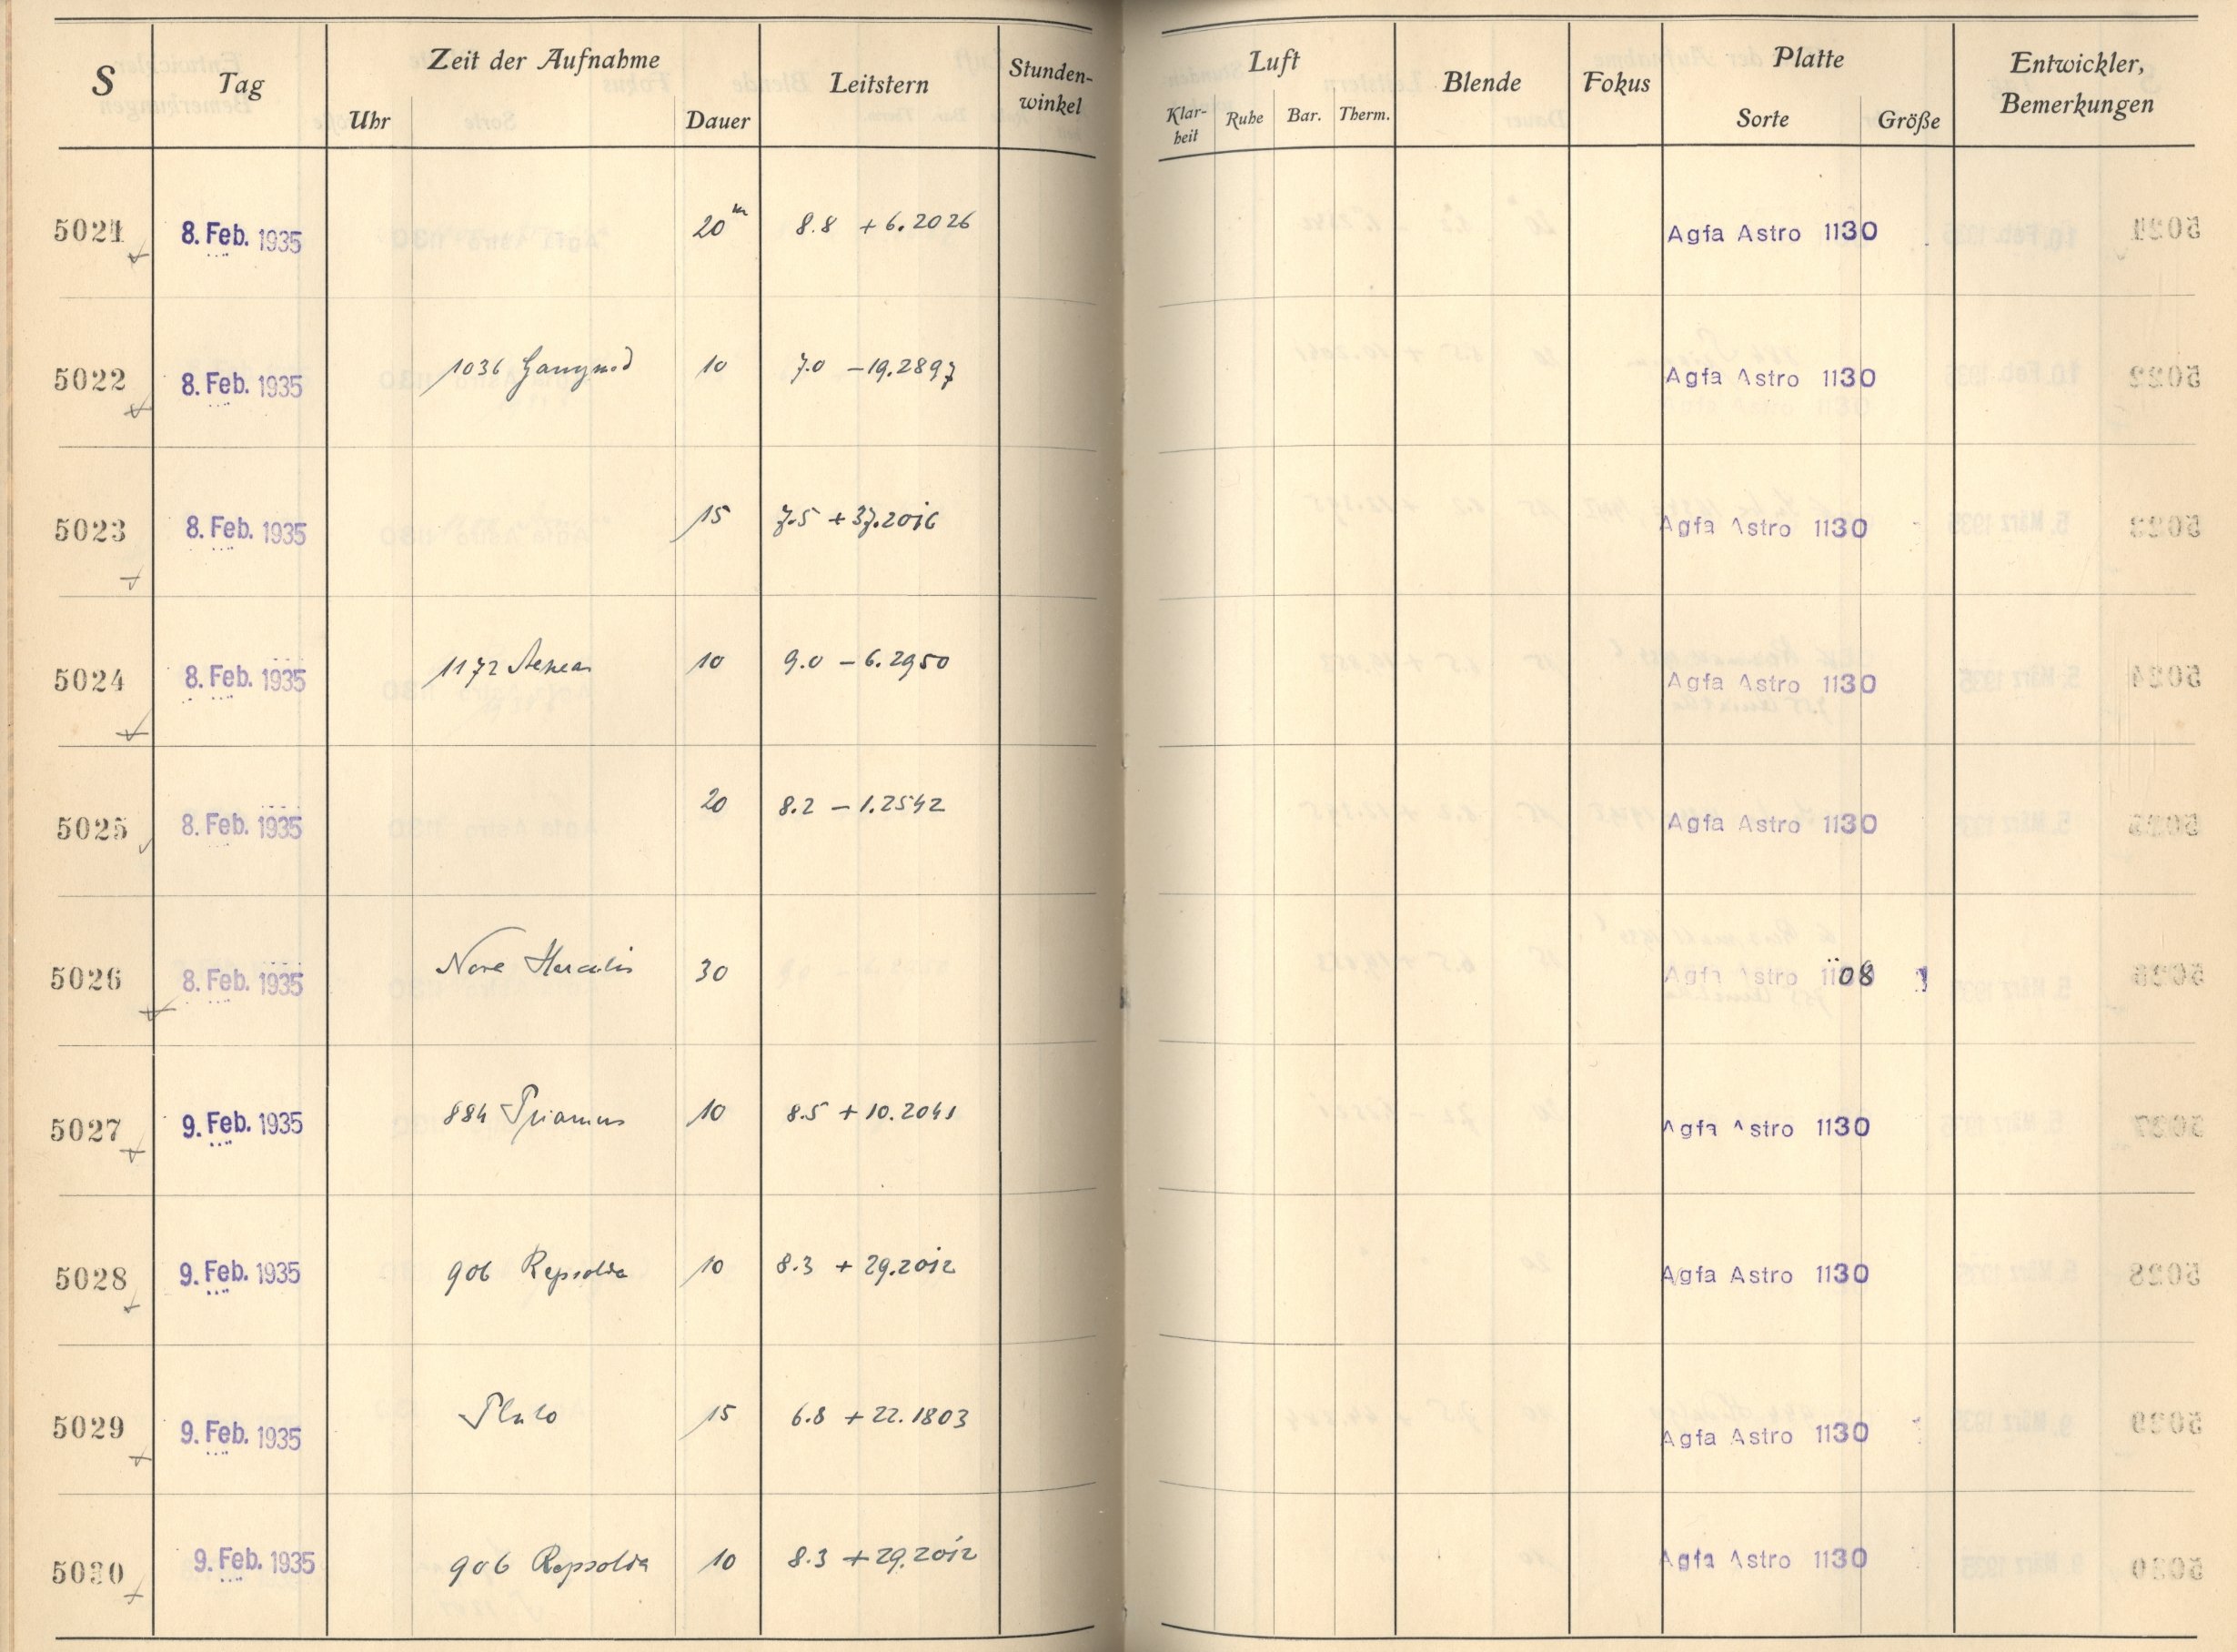 S Tag Zeit der Aufnahme Leitstern Stunden-winkel Luft Blende Fokus Platte Entwickler, Bemerkungen
Uhr Dauer Klar-heit Ruhe Bar. Therm. Sorte Größe
5021 8. Feb. 1935 20m 8.8 +6.2026 Agfa Astro 1130
5022 8. Feb. 1935 1036 Ganymed 10 7.0 -19.2897 Agfa Astro 1130
5023 8. Feb. 1935 15 7.5 +37.2016 Agfa Astro 1130
5024 8. Feb. 1935 1172 Aeneas 10 9.0 -6.2950 Agfa Astro 1130
5025 8. Feb. 1935 20 8.2 -1.2542 Agfa Astro 1130
5026 8. Feb. 1935 Nova Herculis 30 Agfa Astro 1108
5027 9. Feb. 1935 884 Priamus 10 8.5 +10.2041 Agfa Astro 1130
5028 9. Feb. 1935 906 Repsolda 10 8.3 +29.2012 Agfa Astro 1130
5029 9. Feb. 1935 Pluto 15 6.8 +22.1803 Agfa Astro 1130
5030 9. Feb. 1935 906 Repsolda 10 8.3 +29.2012 Agfa Astro 1130